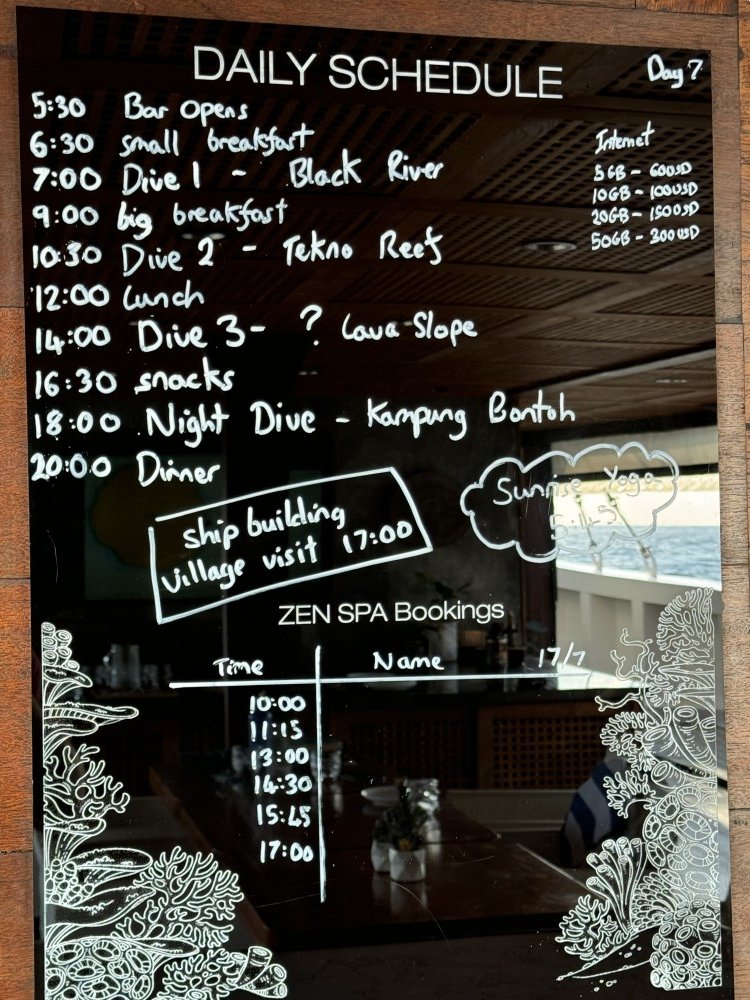 DAILY SCHEDULE
Day 7
5:30 Bar opens
6:30 small breakfast
7:00 Dive 1 - Black River
9:00 big breakfast
10:30 Dive 2 - Tekno Reef
12:00 Lunch
14:00 Dive 3 - ? Lava Slope
16:30 snacks
18:00 Night Dive - Kampung Bontoh
20:00 Dinner
Internet
5GB - 60USD
10GB - 100USD
20GB - 150USD
50GB - 300USD
ship building
village visit 17:00
Sunrise Yoga
5:45
ZEN SPA Bookings
Time Name 17/7
10:00
11:15
13:00
14:30
15:45
17:00